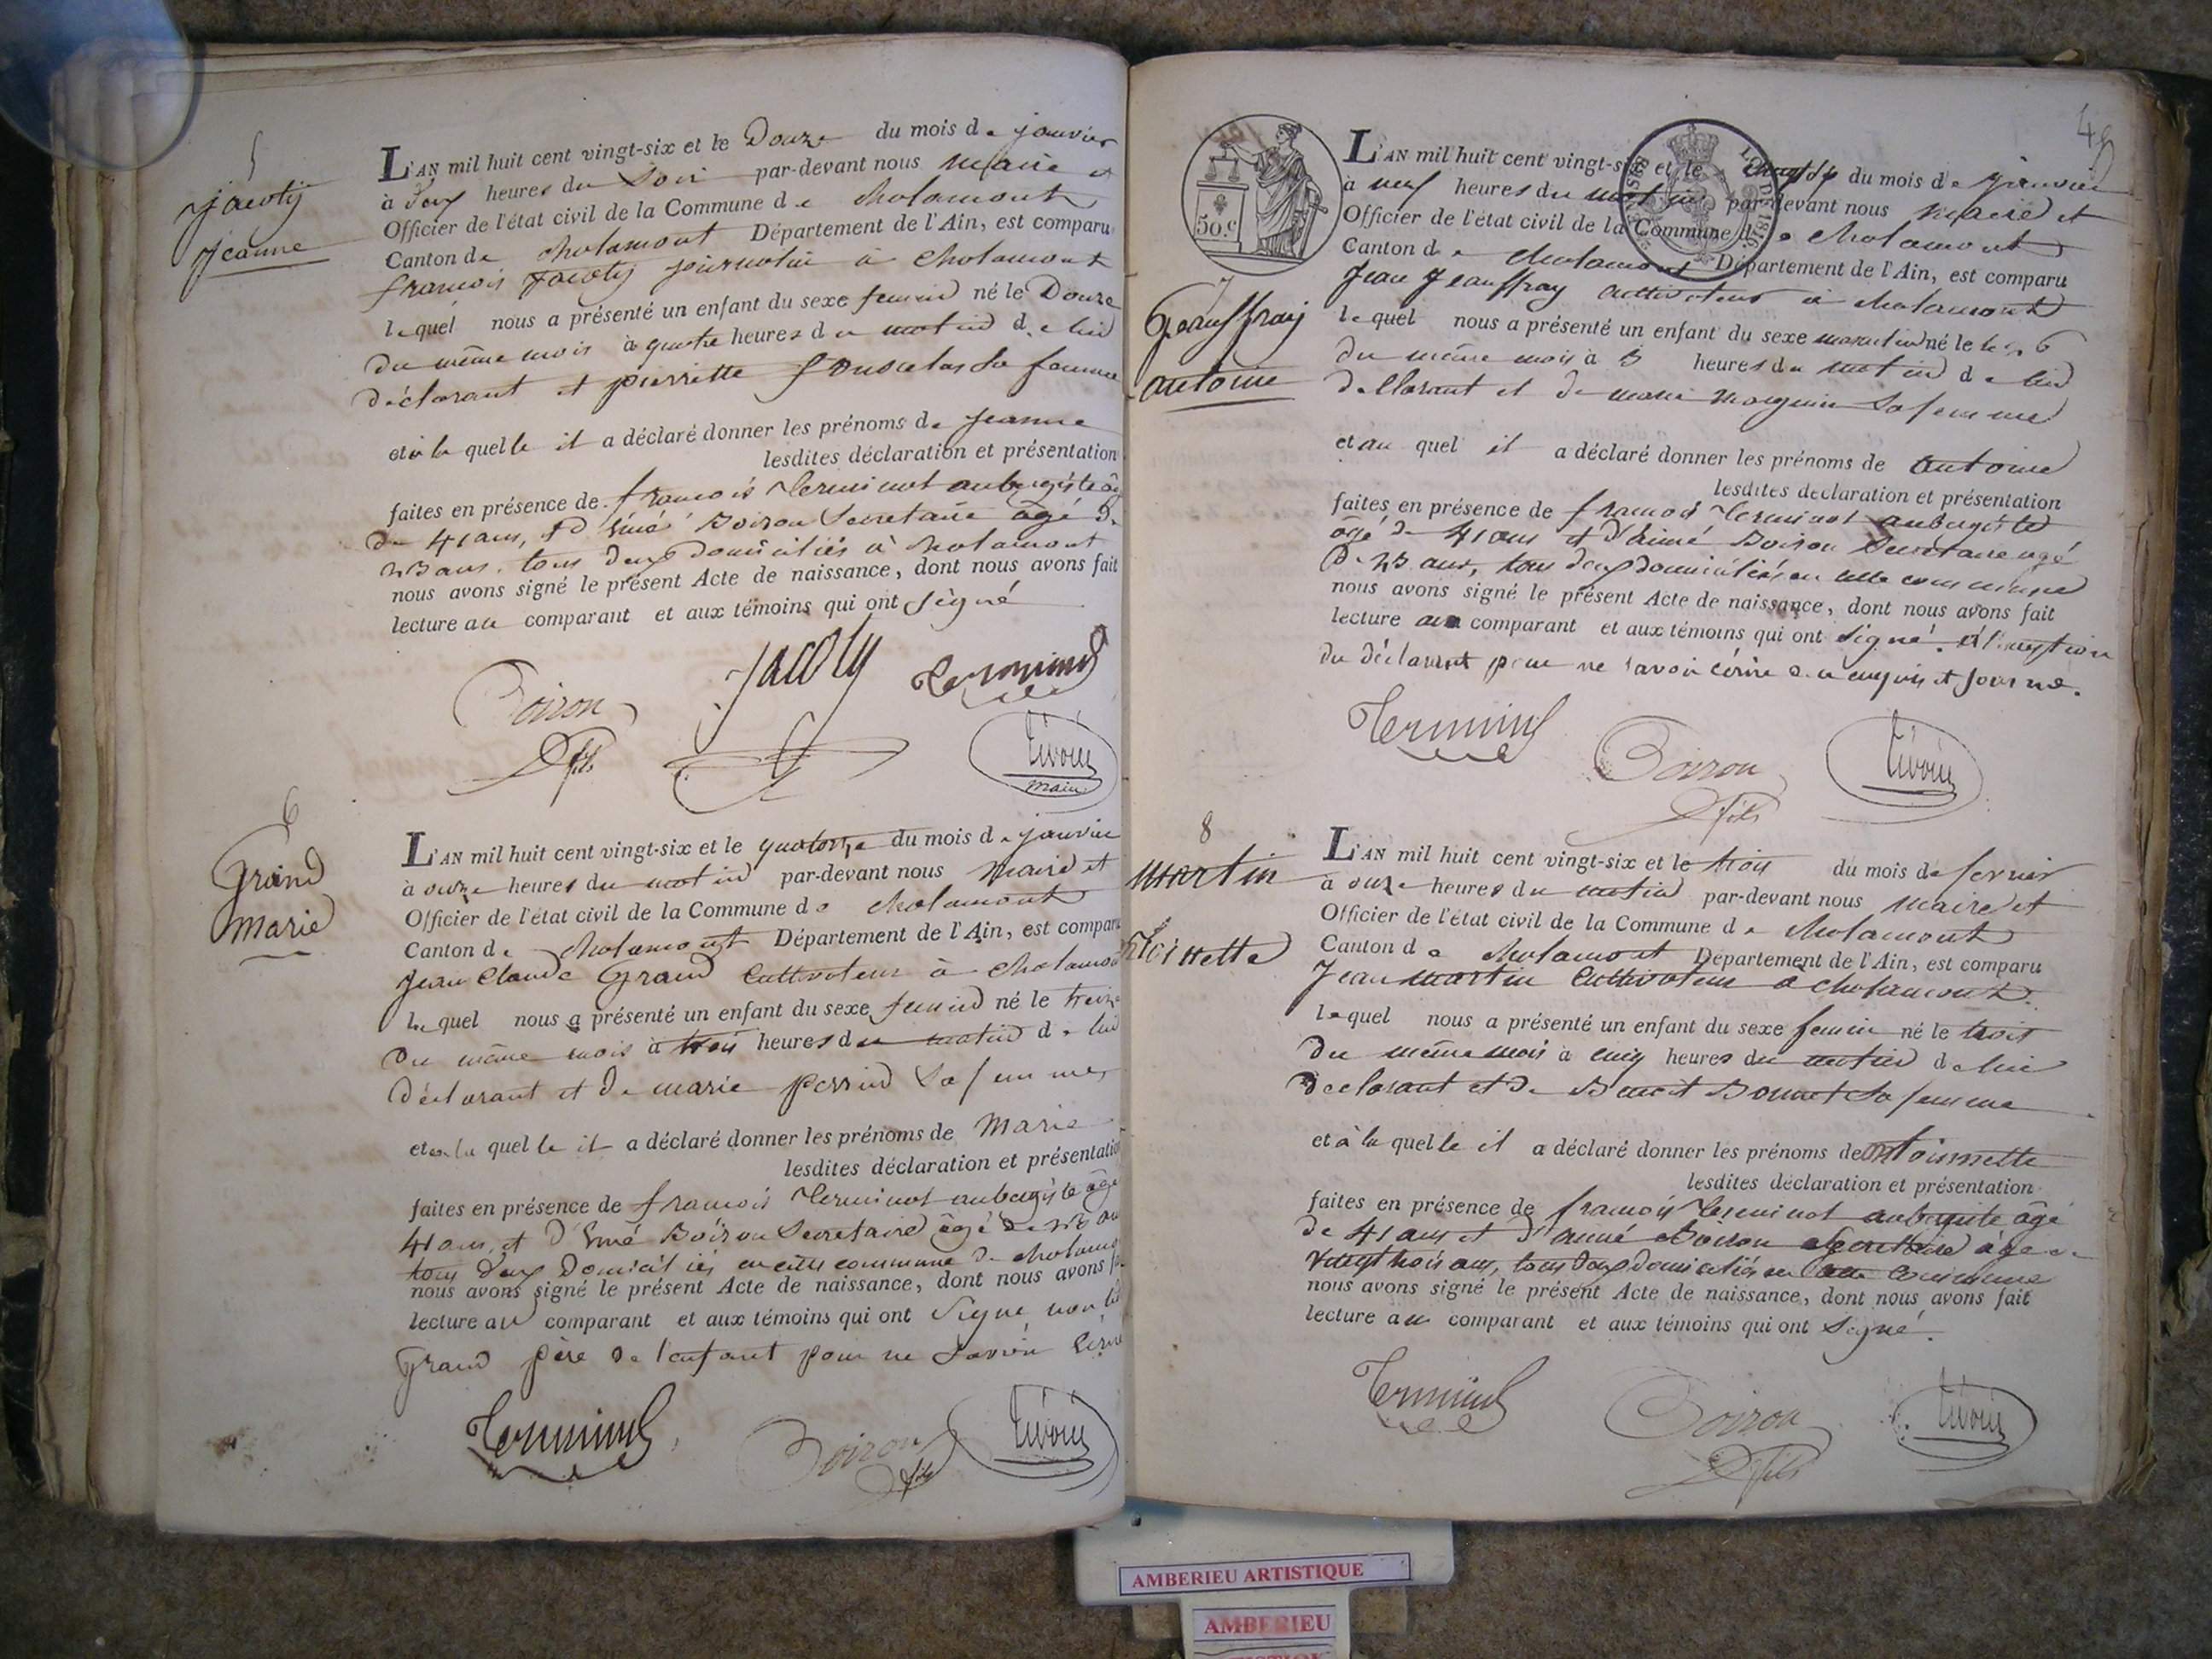 5
Jacoty
Jeanne
L'AN mil huit cent vingt-six et le Douze du mois de janvier
à deux heures du Soir par-devant nous Maire et
Officier de l'état civil de la Commune de Chalamont
Canton de chalamont Département de l'Ain, est comparu
françois Jacoty journalier à Chalamont
lequel nous a présenté un enfant du sexe feminin né le Douze
du même mois à quatre heures du matin de lui
déclarant et pierrette sa femme
et à la quelle il a déclaré donner les prénoms de Jeanne
lesdites déclaration et présentation
faites en présence de françois Terminot aubergiste âgé
de 41 ans, et d'aimé Boiron Secretaire agé de
23 ans, tous deux domiciliés à chalamont
nous avons signé le présent Acte de naissance, dont nous avons fait
lecture au comparant et aux témoins qui ont signé
Boiron fils
Jacoty
Terminot
Livorin
Maire
6
Grand
Marie
L'AN mil huit cent vingt-six et le quatorze du mois de janvier
à onze heures du matin par-devant nous Maire et
Officier de l'état civil de la Commune de chalamont
Canton de chalamont Département de l'Ain, est comparu
Jean Claude Grand Cultivateur à Chalamont
lequel nous a présenté un enfant du sexe feminin né le treize
du même mois à trois heures du matin de lui
déclarant et de marie perrin sa femme
et à la quelle il a déclaré donner les prénoms de Marie
lesdites déclaration et présentation
faites en présence de françois Terminot aubergiste âgé
41 ans, et d'aimé Boiron Secretaire âgé de 23 ans
tous deux domiciliés en cette commune de chalamont
nous avons signé le présent Acte de naissance, dont nous avons fait
lecture au comparant et aux témoins qui ont signé, non le
Grand père de l'enfant pour ne savoir écrire
Terminot
Boiron fils
Livorin
49
50.c
LOI DE 1816
7
Geauffray
antoine
L'AN mil huit cent vingt-six et le vingt six du mois de janvier
à neuf heures du matin par-devant nous Maire et
Officier de l'état civil de la Commune de chalamont
Canton de chalamont Département de l'Ain, est comparu
Jean Jeauffray cultivateur à chalamont
lequel nous a présenté un enfant du sexe masculin né le 26
du même mois à 3 heures du matin de lui
déclarant et de marie sa femme
et au quel il a déclaré donner les prénoms de antoine
lesdites declaration et présentation
faites en présence de françois Terminot aubergiste
âgé de 41 ans et d'aimé Boiron Secrétaire agé
de 23 ans, tous deux domiciliés en cette commune
nous avons signé le présent Acte de naissance, dont nous avons fait
lecture au comparant et aux témoins qui ont signé. à l'exception
du déclarant pour ne savoir écrire de ce enquis et sommé.
Terminot
Boiron fils
Livorin
8
Martin
ntoinette
L'AN mil huit cent vingt-six et le trois du mois de fevrier
à onze heures du matin par-devant nous Maire et
Officier de l'état civil de la Commune de chalamont
Canton de chalamont Département de l'Ain, est comparu
Jean Martin Cultivateur à chalamont
lequel nous a présenté un enfant du sexe feminin né le trois
du même mois à cinq heures du matin de lui
déclarant et de Benoit Bonnet sa femme
et à la quelle il a déclaré donner les prénoms de antoinette
lesdites déclaration et présentation
faites en présence de françois Terminot aubergiste âgé
de 41 ans et d'aimé Boiron Secretaire âgé de
vingt trois ans, tous deux domiciliés en cette commune
nous avons signé le présent Acte de naissance, dont nous avons fait
lecture au comparant et aux témoins qui ont signé.
Terminot
Boiron fils
Livorin
AMBERIEU ARTISTIQUE
AMBERIEU